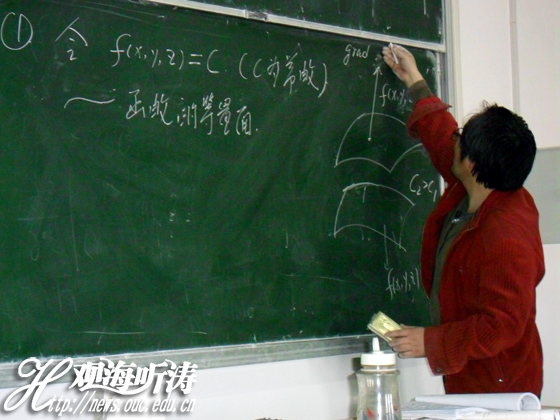 ① 令 f(x,y,z)=C.(C为常数)
—函数的等量面.
grad
f(x,y,
C₂>C₁
f(x,y,z)
观海听涛
Http://news.ouc.edu.cn